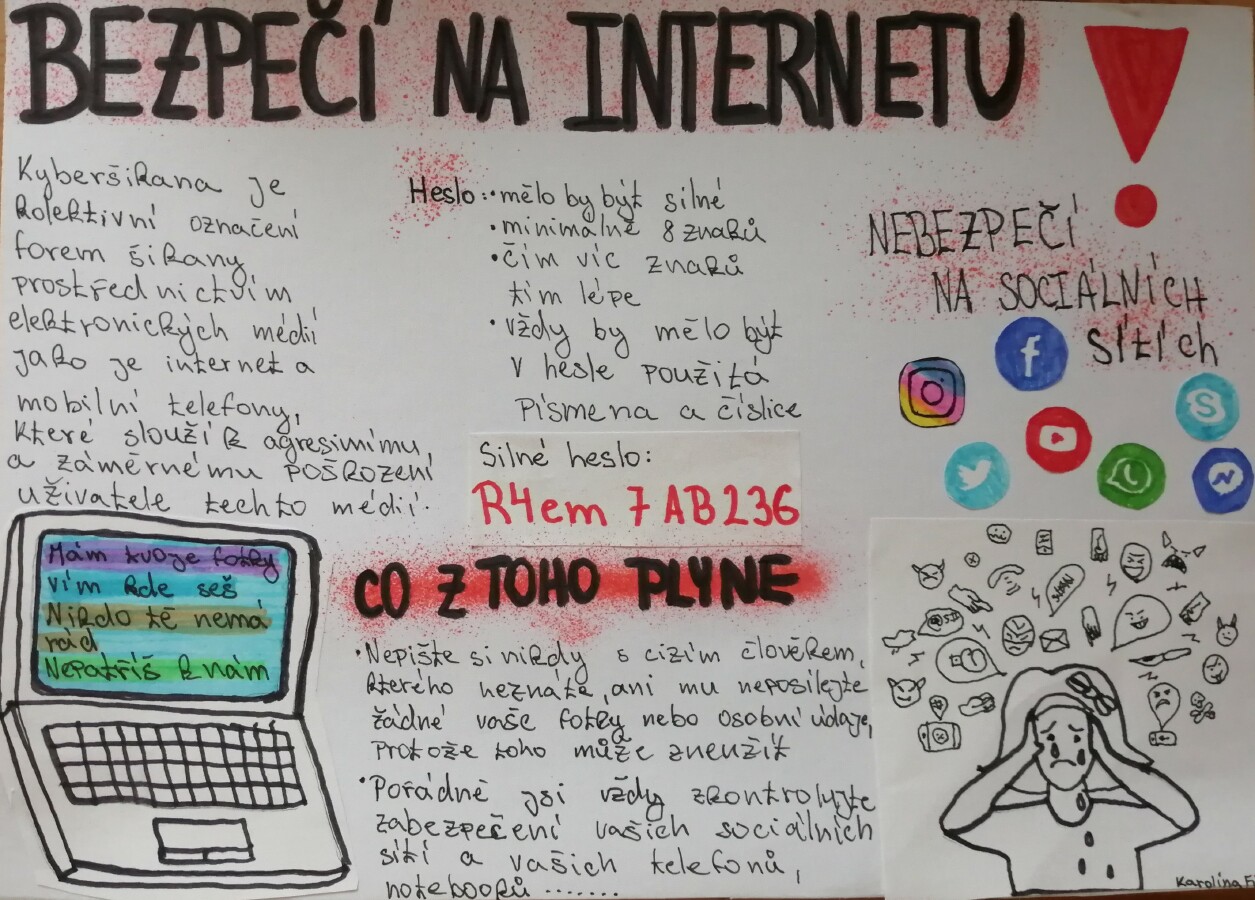 BEZPEČÍ NA INTERNETU
Kyberšikana je
kolektivní označení
forem šikany
prostřednictvím
elektronických médií
jako je internet a
mobilní telefony,
které slouží k agresivnímu
a záměrnému poškození
uživatele techto médií.
Heslo: • mělo by být silné
• minimálně 8 znaků
• čím víc znaků
tím lépe
• vždy by mělo být
v hesle použitá
písmena a číslice
Silné heslo:
R4em 7AB236
NEBEZPEČÍ
NA SOCIÁLNÍCH
SÍTÍCH
Mám tvoje fotky
vím kde seš
Nikdo tě nemá
rád
Nepatříš k nám
CO Z TOHO PLYNE
• Nepište si nikdy s cizím člověkem,
kterého neznáte, ani mu neposílejte
žádné vaše fotky nebo osobní údaje,
protože toho může zneužít
• Pořádně jsi vždy zkontrolujte
zabezpečení vašich sociálních
sítí a vašich telefonů,
notebooků .......
Karolína